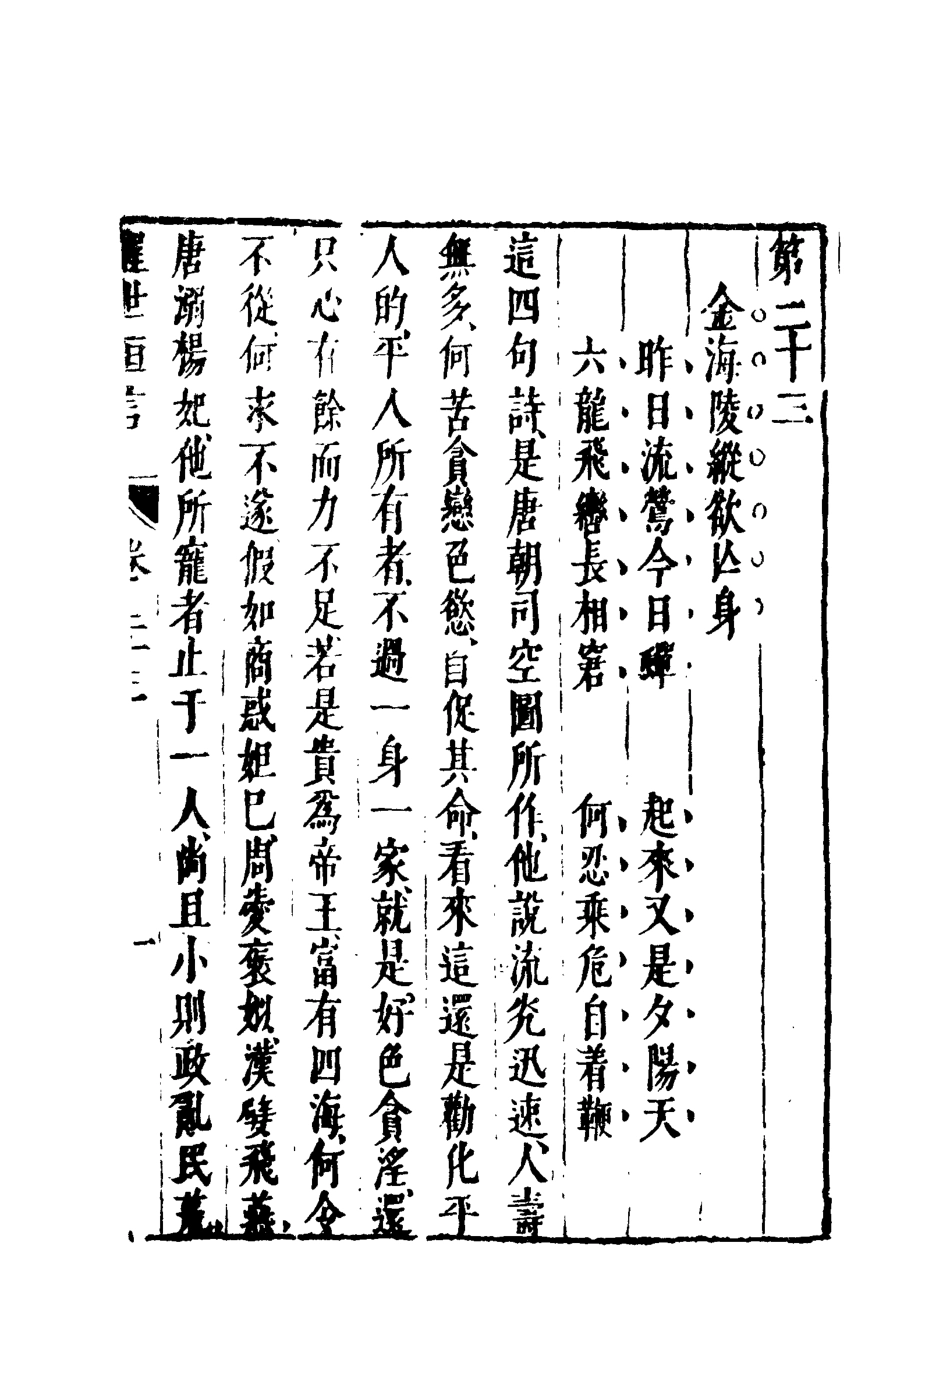 第二十三
金海陵縱欲亡身
昨日流鶯今日蟬　起來又是夕陽天
六龍飛轡長相窘　何忍乘危自着鞭
這四句詩、是唐朝司空圖所作、他說流光迅速、人壽
無多、何苦貪戀色慾、自促其命、看來這還是勸化平
人的、平人所有者、不過一身一家、就是好色貪淫、還
只心有餘而力不足、若是貴爲帝王、富有四海、何令
不從、何求不遂、假如商惑妲已、周愛褒姒、漢嬖飛燕、
唐溺楊妃、他所寵者止于一人、尚且小則政亂民荒、
醒世恒言　卷二十三　一